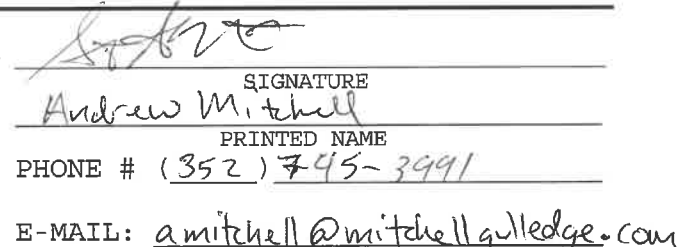 SIGNATURE
Andrew Mitchell
PRINTED NAME
PHONE # (352) 745-3991
E-MAIL: amitchell@mitchellgulledge.com